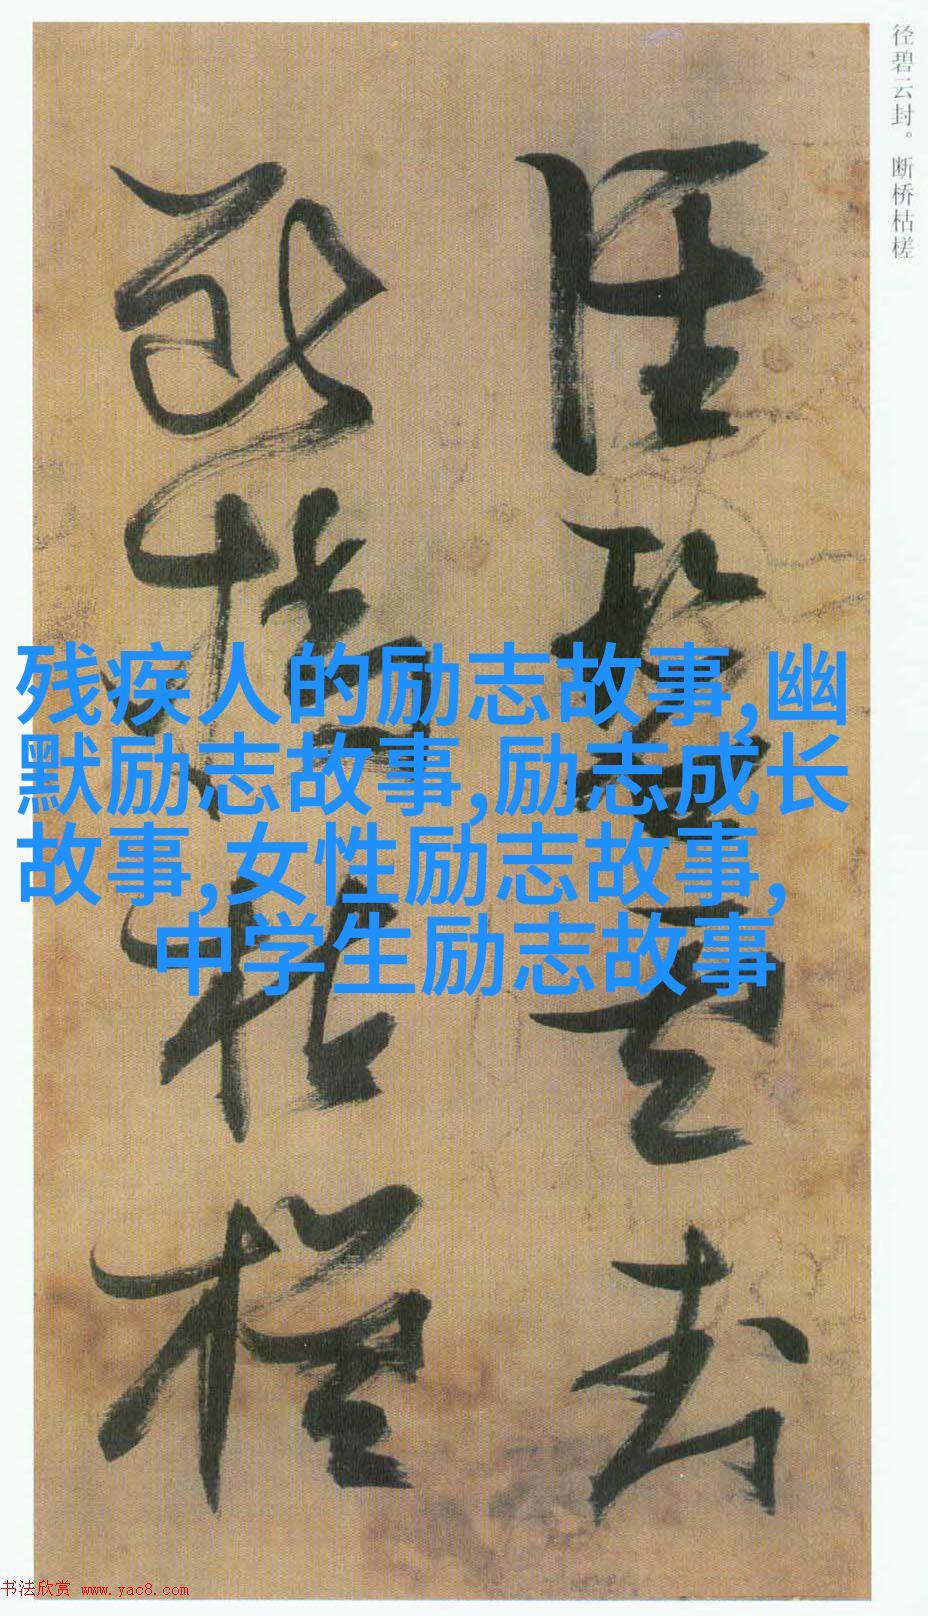 径碧云封。断桥枯槎
径碧云封
断桥枯槎
残疾人的励志故事,幽
默励志故事,励志成长
故事,女性励志故事,
中学生励志故事
书法欣赏 www.yac8.com